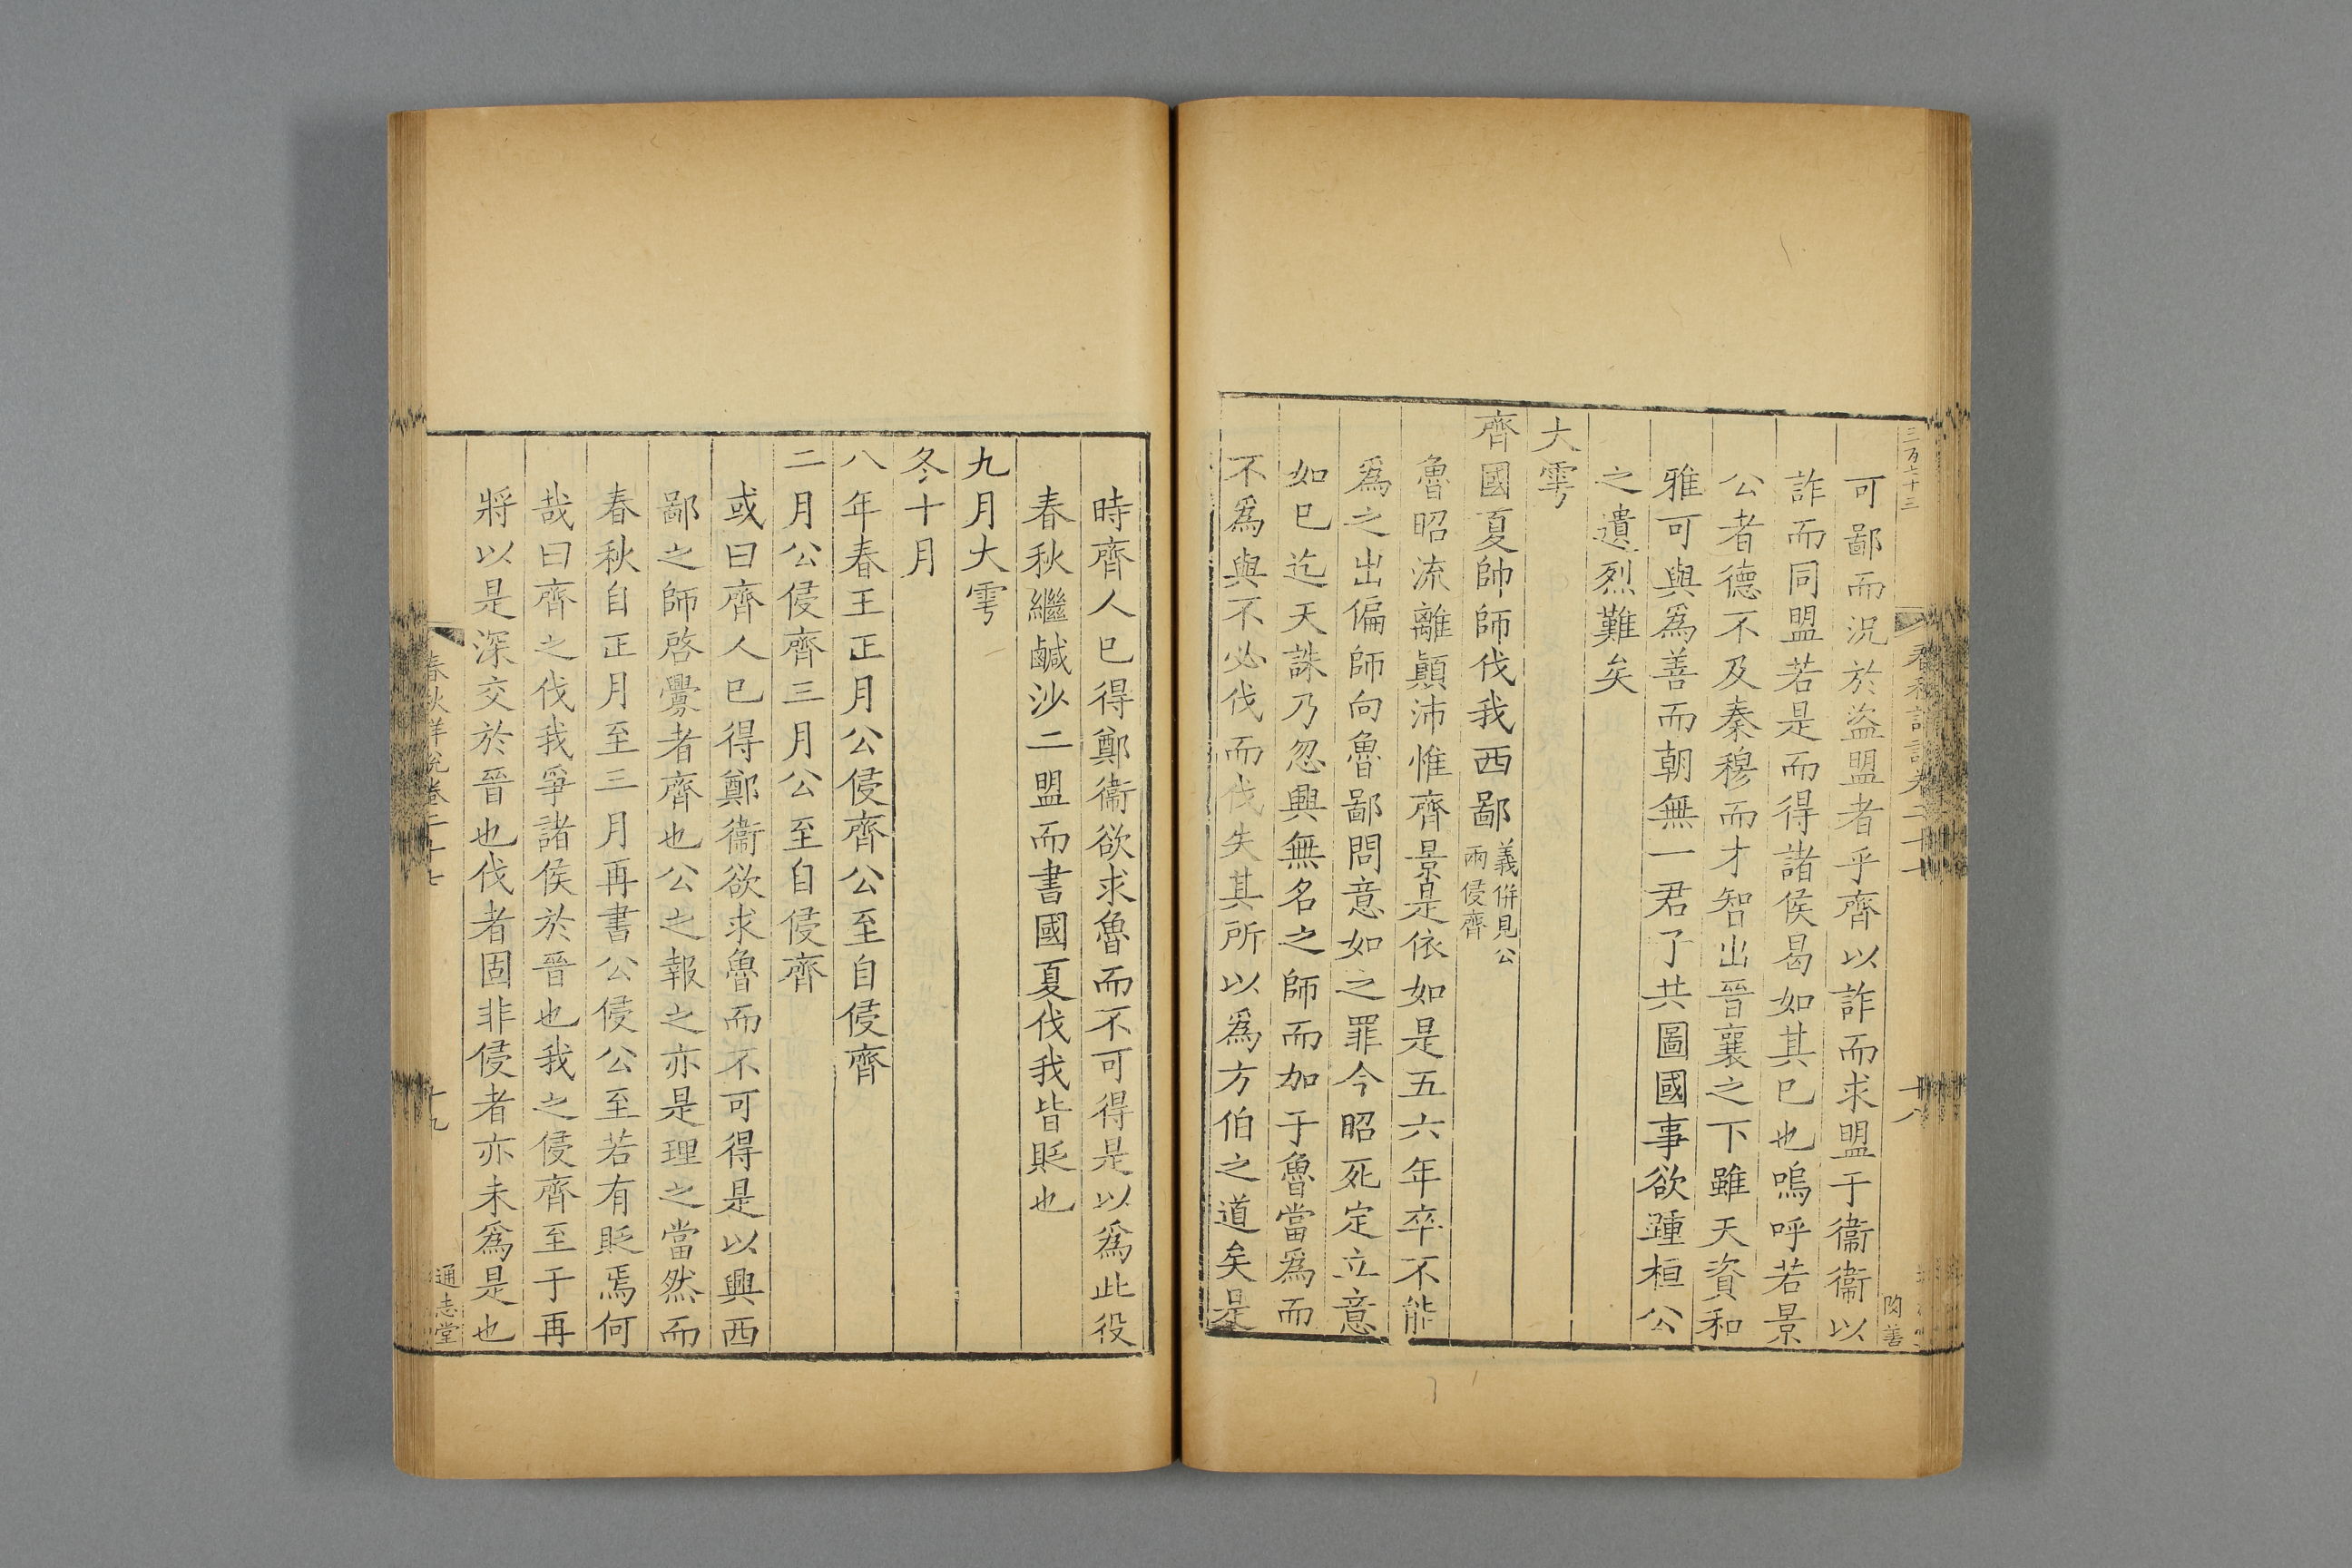 三百七十三
春秋詳說卷二十七
十八
閔善
可鄙而況於盜盟者乎齊以詐而求盟于衞衞以
詐而同盟若是而得諸侯曷如其已也嗚呼若景
公者德不及秦穆而才智出晉襄之下雖天資和
雅可與爲善而朝無一君子共圖國事欲踵桓公
之遺烈難矣
大雩
齊國夏帥師伐我西鄙義併見公
兩侵齊
魯昭流離顚沛惟齊景是依如是五六年卒不能
爲之出偏師向魯鄙問意如之罪今昭死定立意
如已迄天誅乃忽興無名之師而加于魯當爲而
不爲與不必伐而伐失其所以爲方伯之道矣是
時齊人已得鄭衞欲求魯而不可得是以爲此役
春秋繼鹹沙二盟而書國夏伐我皆貶也
九月大雩
冬十月
八年春王正月公侵齊公至自侵齊
二月公侵齊三月公至自侵齊
或曰齊人已得鄭衞欲求魯而不可得是以興西
鄙之師啓釁者齊也公之報之亦是理之當然而
春秋自正月至三月再書公侵公至若有貶焉何
哉曰齊之伐我爭諸侯於晉也我之侵齊至于再
將以是深交於晉也伐者固非侵者亦未爲是也
春秋詳說卷二十七
十九
通志堂